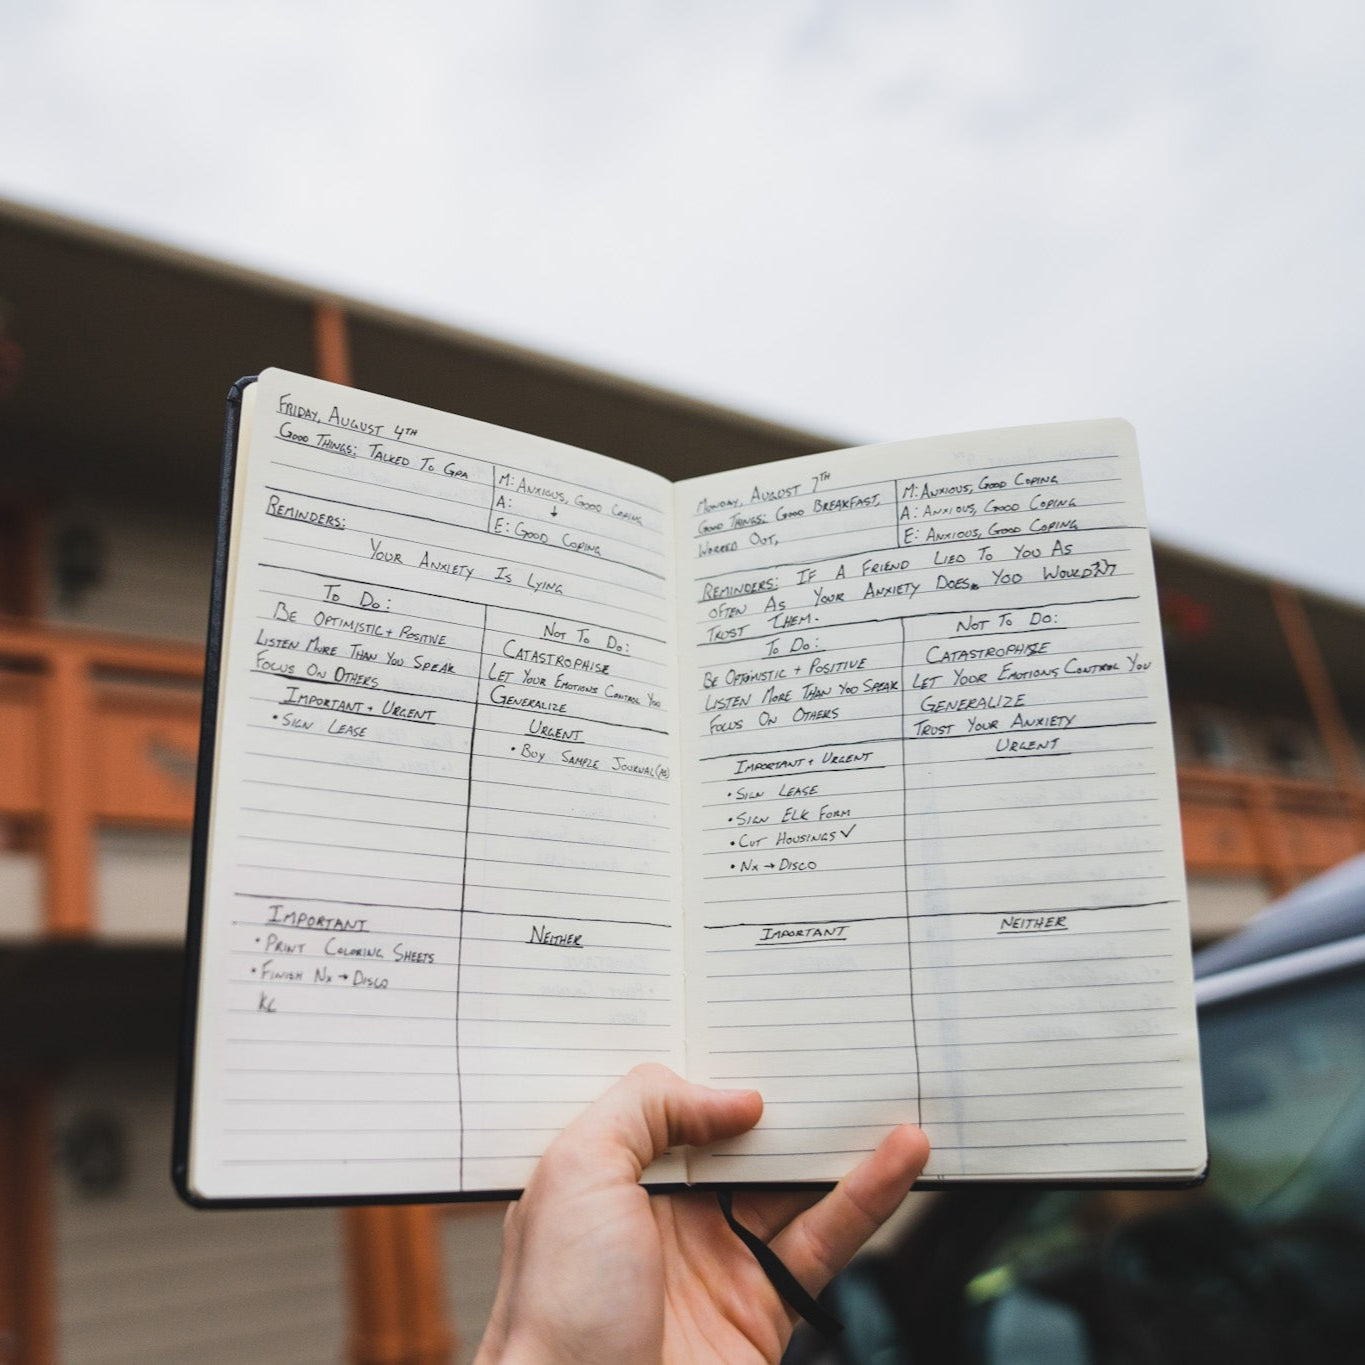 FRIDAY, AUGUST 4TH
GOOD THINGS: TALKED TO GPA
M: ANXIOUS, GOOD COPING
A: ↓
E: GOOD COPING
REMINDERS:
YOUR ANXIETY IS LYING
TO DO:
BE OPTIMISTIC + POSITIVE
LISTEN MORE THAN YOU SPEAK
FOCUS ON OTHERS
NOT TO DO:
CATASTROPHISE
LET YOUR EMOTIONS CONTROL YOU
GENERALIZE
IMPORTANT + URGENT
• SIGN LEASE
URGENT
• BUY SAMPLE JOURNAL
IMPORTANT
• PRINT COLORING SHEETS
• FINISH NX → DISCO
KC
NEITHER
MONDAY, AUGUST 7TH
GOOD THINGS: GOOD BREAKFAST,
WORKED OUT,
M: ANXIOUS, GOOD COPING
A: ANXIOUS, GOOD COPING
E: ANXIOUS, GOOD COPING
REMINDERS: IF A FRIEND LIED TO YOU AS
OFTEN AS YOUR ANXIETY DOES, YOU WOULDN'T
TRUST THEM.
TO DO:
BE OPTIMISTIC + POSITIVE
LISTEN MORE THAN YOU SPEAK
FOCUS ON OTHERS
NOT TO DO:
CATASTROPHISE
LET YOUR EMOTIONS CONTROL YOU
GENERALIZE
TRUST YOUR ANXIETY
IMPORTANT + URGENT
• SIGN LEASE
• SIGN ELK FORM
• CUT HOUSINGS ✓
• NX → DISCO
URGENT
IMPORTANT
NEITHER